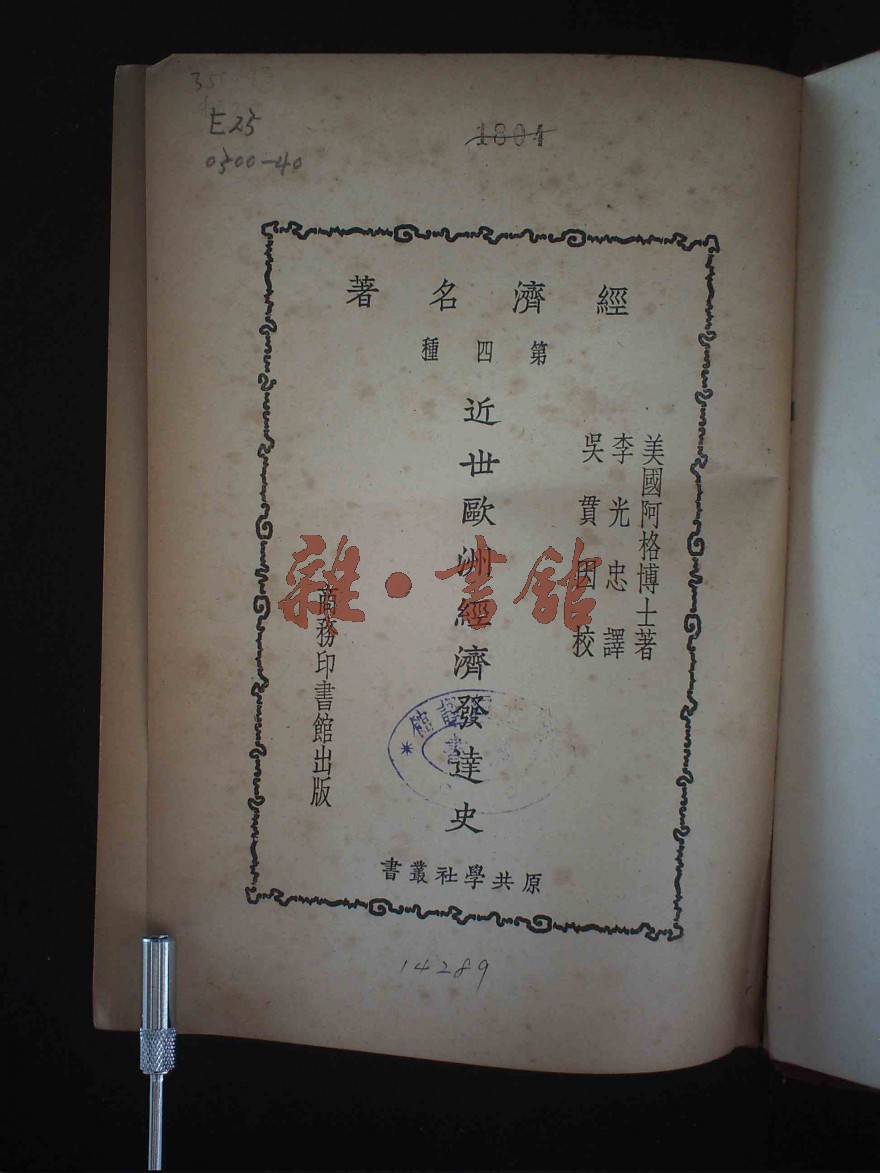 E25
0500-40
1801
經濟名著
第四種
美國阿格博士著
李光忠譯
吳貫因校
近世歐洲經濟發達史
商務印書館出版
雜·書館
原共學社叢書
14289